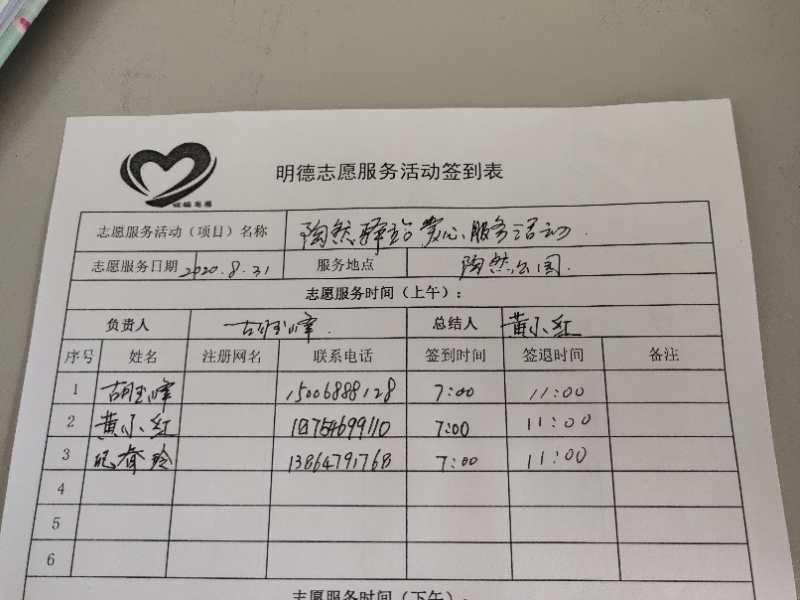 明德志愿服务活动签到表
志愿服务活动（项目）名称 陶然驿站爱心服务活动
志愿服务日期 2020.8.31 服务地点 陶然公园
志愿服务时间（上午）：
负责人 胡玉峰 总结人 黄小红
序号 姓名 注册网名 联系电话 签到时间 签退时间 备注
1 胡玉峰 15006888128 7:00 11:00
2 黄小红 7:00 11:00
3 13864791768 7:00 11:00
4
5
6
志愿服务时间（下午）：